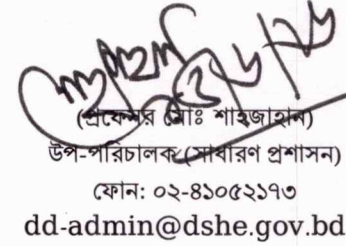 (প্রফেসর মোঃ শাহজাহান)
উপ-পরিচালক (সাধারণ প্রশাসন)
ফোন: ০২-৪১০৫২১৭৩
dd-admin@dshe.gov.bd